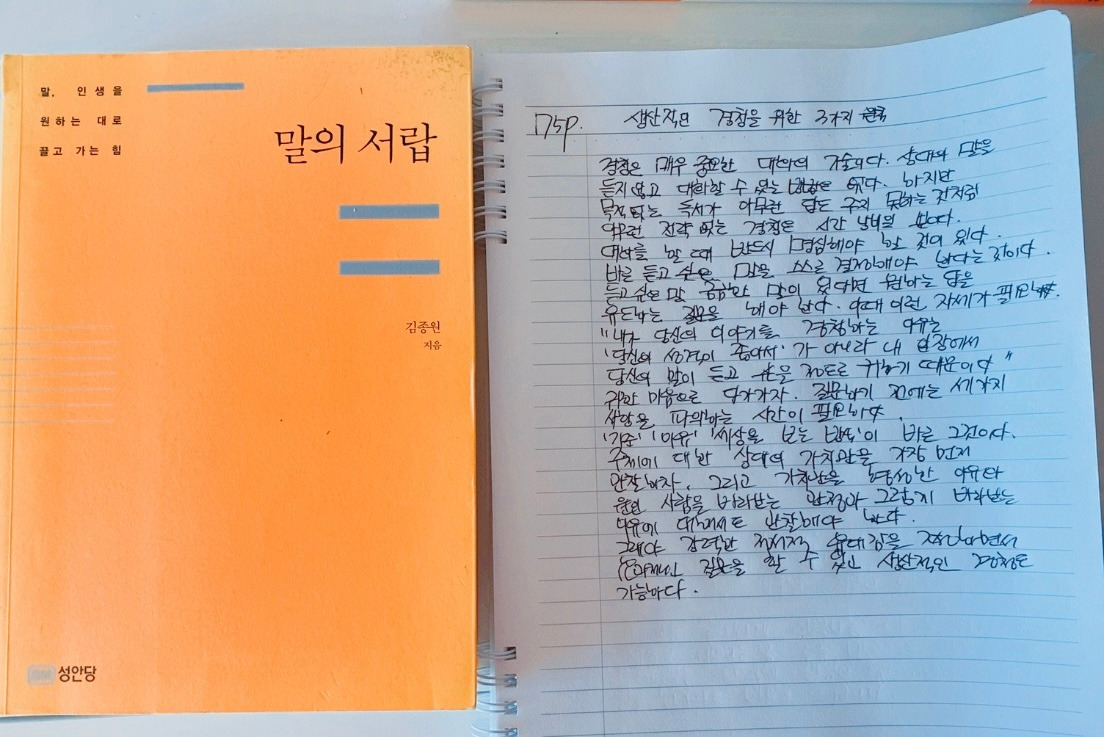 말, 인생을
원하는 대로
끌고 가는 힘
말의 서랍
김종원
지음
성안당
175p. 생산적인 경청을 위한 3가지
경청은 매우 중요한 대화의 기술이다. 상대의 말을
듣지 않고 대화할 수 있는 방법은 없다. 하지만
목적 없는 독서가 아무런 답도 주지 못하는 것처럼
아무런 전략 없는 경청은 시간 낭비일 뿐이다.
대화를 할 때 반드시 명심해야 할 것이 있다.
바로 듣고 싶은 말을 스스로 결정해야 한다는 것이다.
듣고 싶은 말 궁금한 말이 있다면 원하는 답을
유도하는 질문을 해야 한다. 이때 이런 자세가 필요하다.
"내가 당신의 이야기를 경청하는 이유는
'당신의 성격이 좋아서'가 아니라 내 입장에서
당신의 말이 듣고 싶을 정도로 귀하기 때문이다"
귀한 마음으로 다가가자. 질문하기 전에는 세가지
사항을 파악하는 시간이 필요하다.
'기준' '이유' '세상을 보는 방법'이 바로 그것이다.
주제에 대한 상대의 가치관을 가장 먼저
관찰하자. 그리고 가치관을 형성한 이유와
사람을 바라보는 관점이 그렇게 바라보는
이유에 대해서도 관찰해야 한다.
그래야 강력한 정서적 유대감을 하면서
질문을 할 수 있고 생산적인 경청도
가능하다.